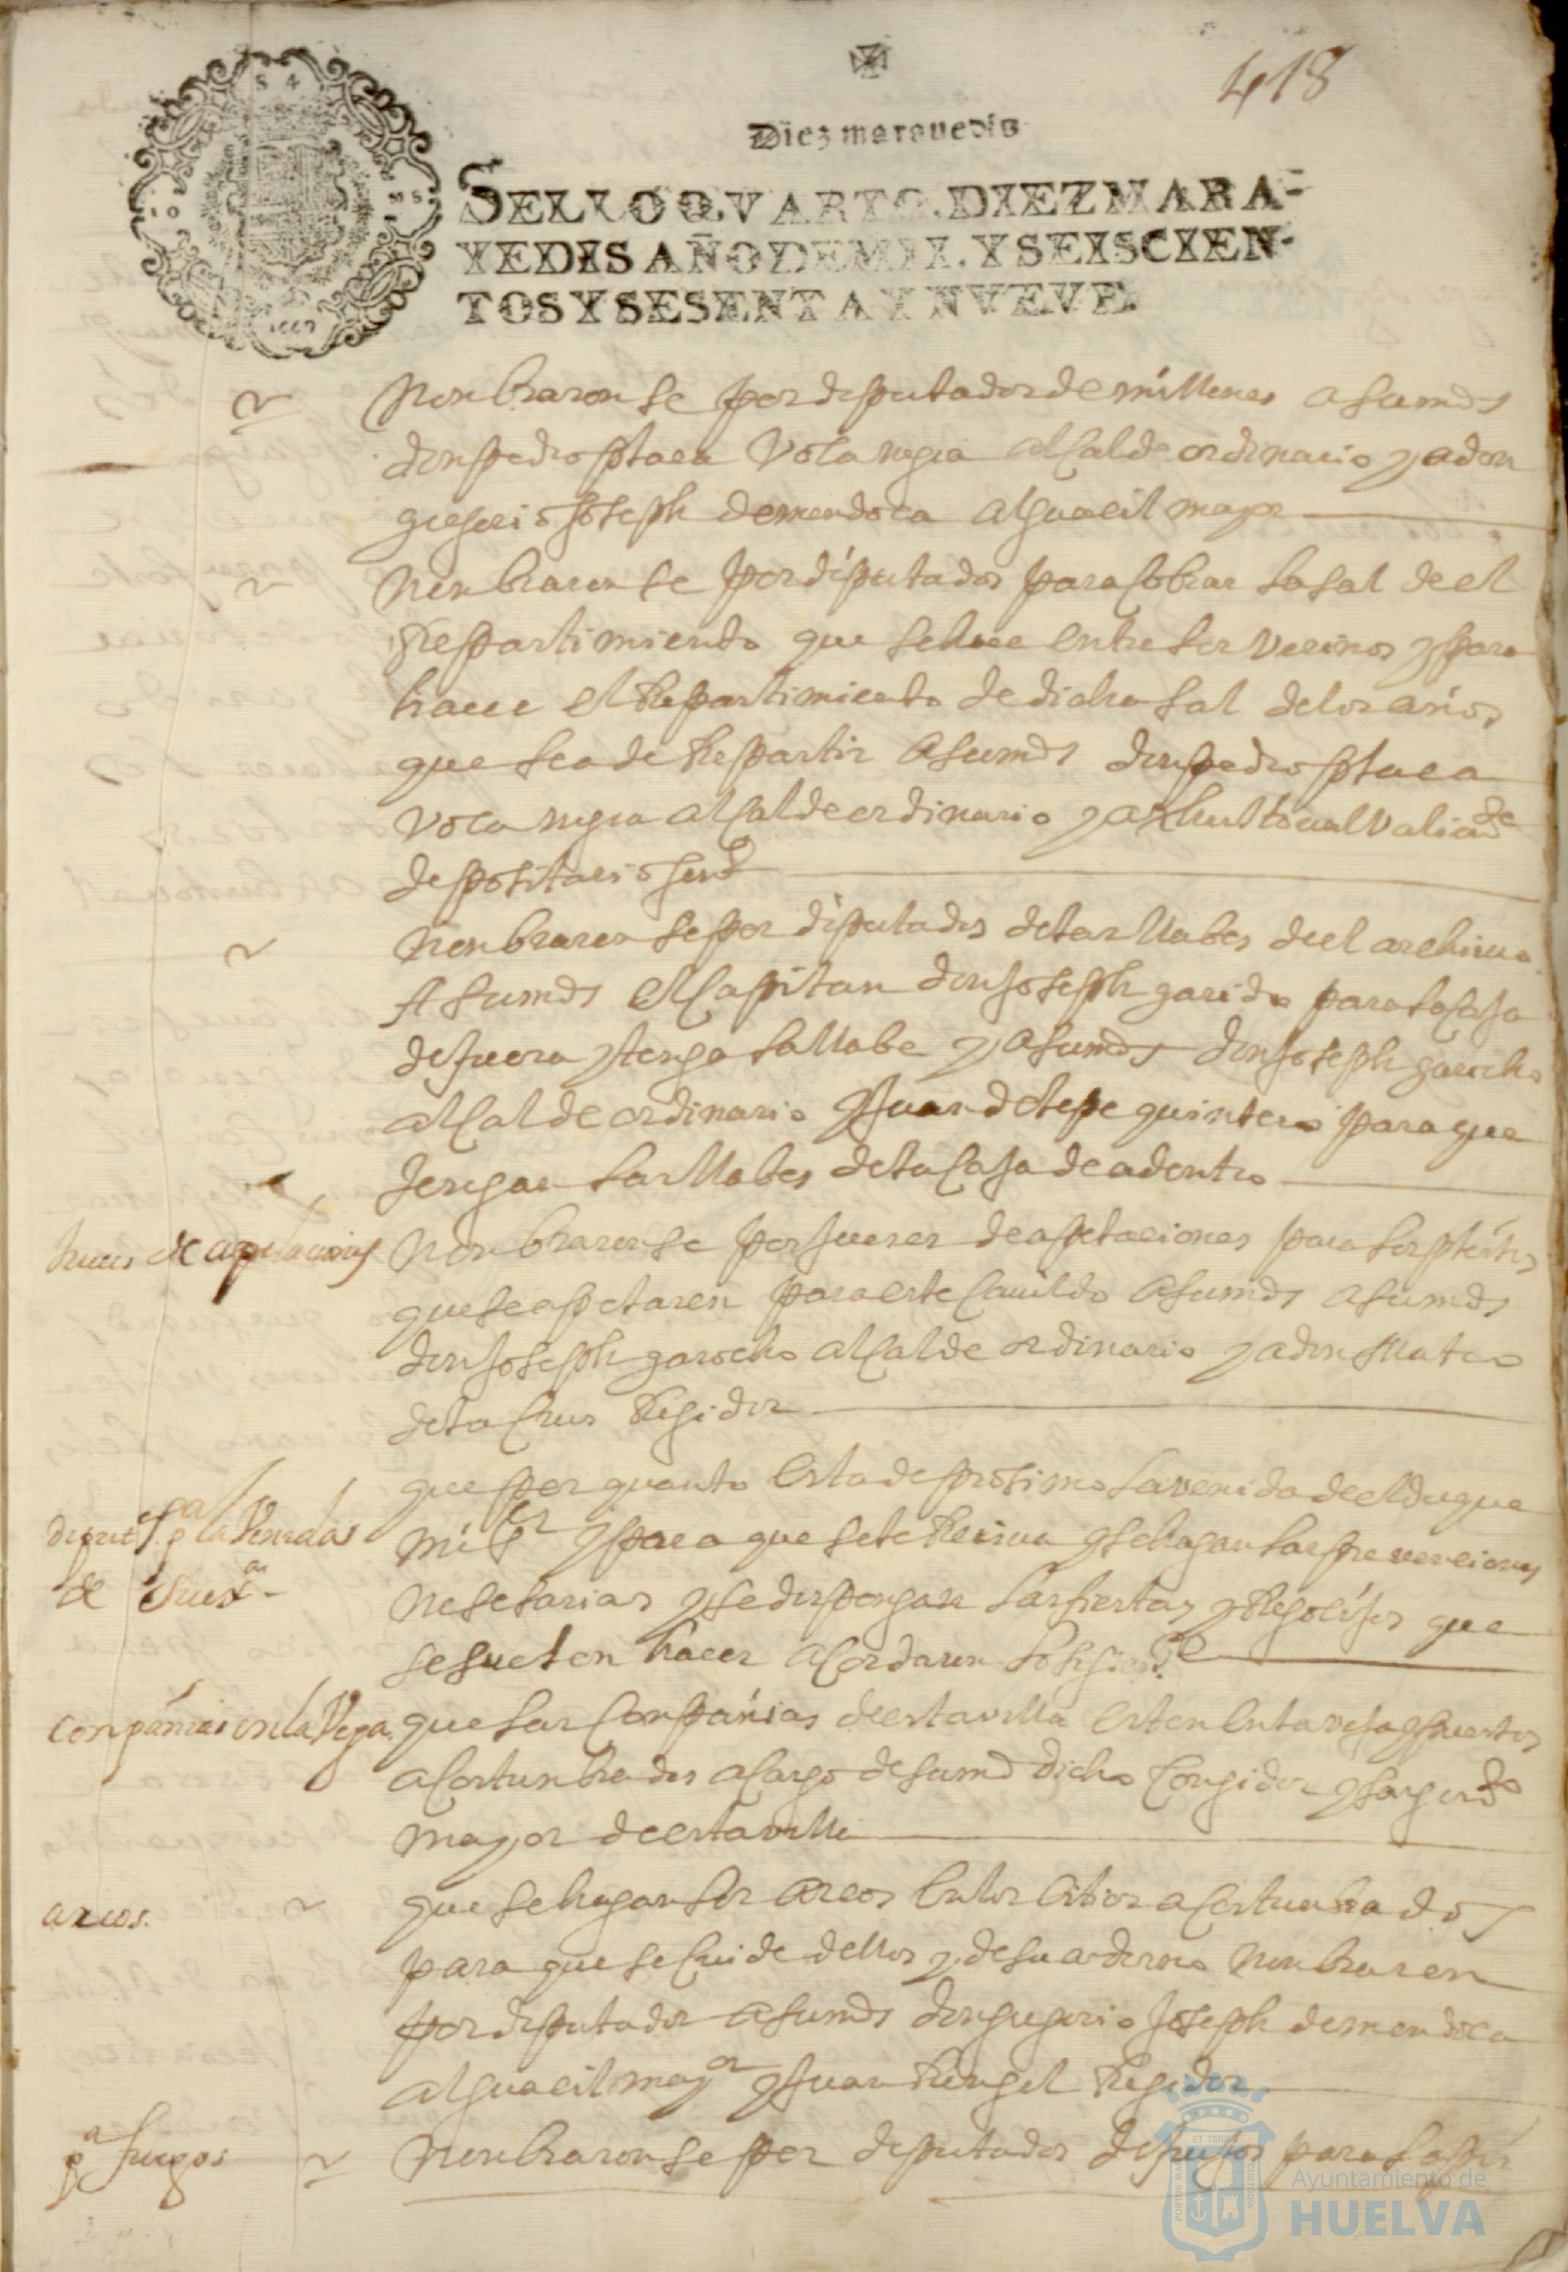 418
Diez maravedis
SELLO QVARTO, DIEZ MARA-
VEDIS AÑO DE MIL Y SEISCIEN-
TOS Y SESENTA Y NVEVE.
Nonbraronse por diputados de millones a sus mds
don pedro plaça alcalde ordinario y a don
gregorio Joseph de mendoca alguacil mayor
Nonbraronse por diputados para cobrar la sal de el
Repartimiento que se hace entre los Vecinos y para
hacer el Repartimiento de dicha sal de los años
que sea de Repartir a sus mds don pedro plaça
alcalde ordinario y a
depositario Genl
Nonbraronse por diputados de las llabes de el archivo
A sus mds el Capitan don Joseph garido para la Caja
de fuera y tenga la llabe y a sus mds don Joseph garocho
alcalde ordinario y Juan de lepe quintero para que
tengan las llabes de la Caja de adentro
Jueces de apelaciones
Nonbraronse por Jueces de apelaciones para los pleitos
que se apelaren para este Cavildo a sus mds a sus mds
don Joseph garocho alcalde ordinario y a don Mateo
de la Crus Regidor
diputs pa la Venida
de Su exa
que por quanto esta de prosimo la venida de el duque
mi Sr y para que se le Reciva y se hagan las prevenciones
nesesarias y se dispongan las fiestas y Regocijos que
se suelen hacer acordaron lo siguiente
Conpañias en la Vega.
que las Conpañias de esta villa esten en la vega y puestos
acostunbrados a cargo de su md dicho Coregidor y sargento
mayor de esta villa
arcos.
que se hagan los arcos en los citios acostunbrados
para que se Cuide dellos y de su adorno nonbraron
por diputados a sus mds don gregorio Joseph de mendoca
alguacil mayor y Juan Rengel Regidor
pa fuegos
Nonbraronse por diputados de fuegos para
Ayuntamiento de
HUELVA